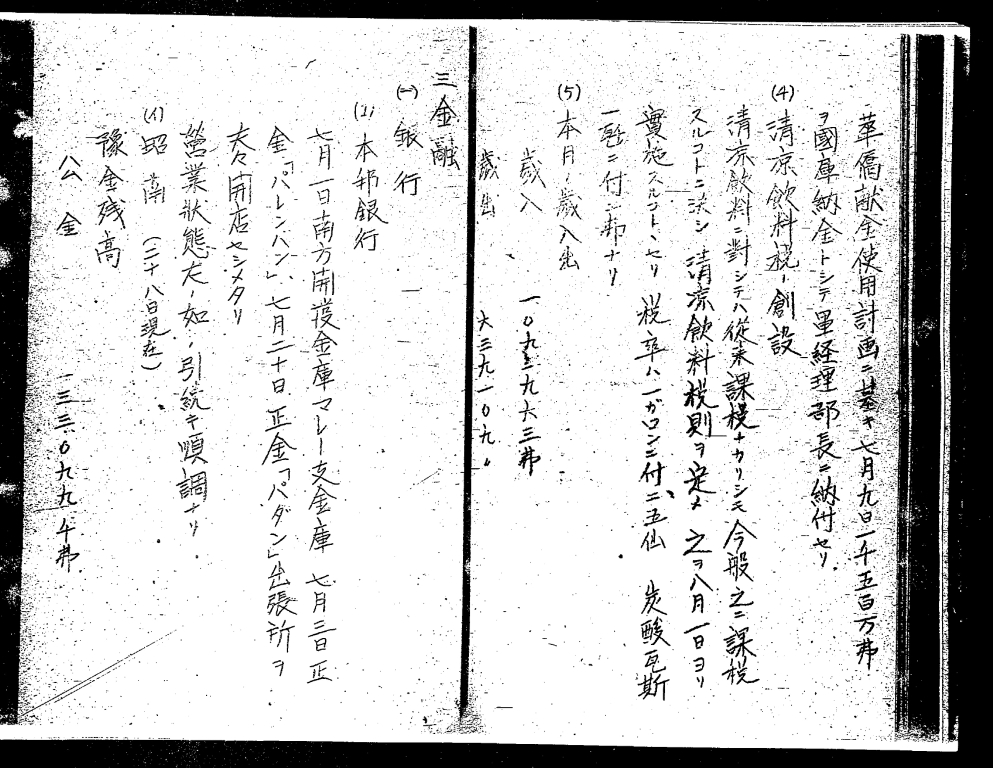 華僑献金使用計画ニ基キ七月九日一千五百万弗
ヲ國庫納金トシテ軍経理部長ニ納付セリ
(4) 清凉飲料税ノ創設
清凉飲料ニ對シテハ從来課税ナカリシモ今般之ニ課税
スルコトニ決シ清凉飲料税則ヲ定メ之ヲ八月一日ヨリ
實施スルコトヽセリ税率ハ一ガロンニ付二五仙 炭酸瓦斯
ニ付二弗ナリ
(5) 本月ノ歳入出
歳入 一〇九三九六三弗
歳出 六三九一〇九〃
三 金融
(一) 銀行
(1) 本邦銀行
七月一日南方開発金庫マレー支金庫 七月三日正
金「パレンバン」、七月二十日正金「パダン」出張所ヲ
夫々開店セシメタリ
營業狀態左ノ如ク引続キ順調ナリ
(イ) 昭南 (二十八日現在)
豫金残高
公金 一三三〇九九千弗